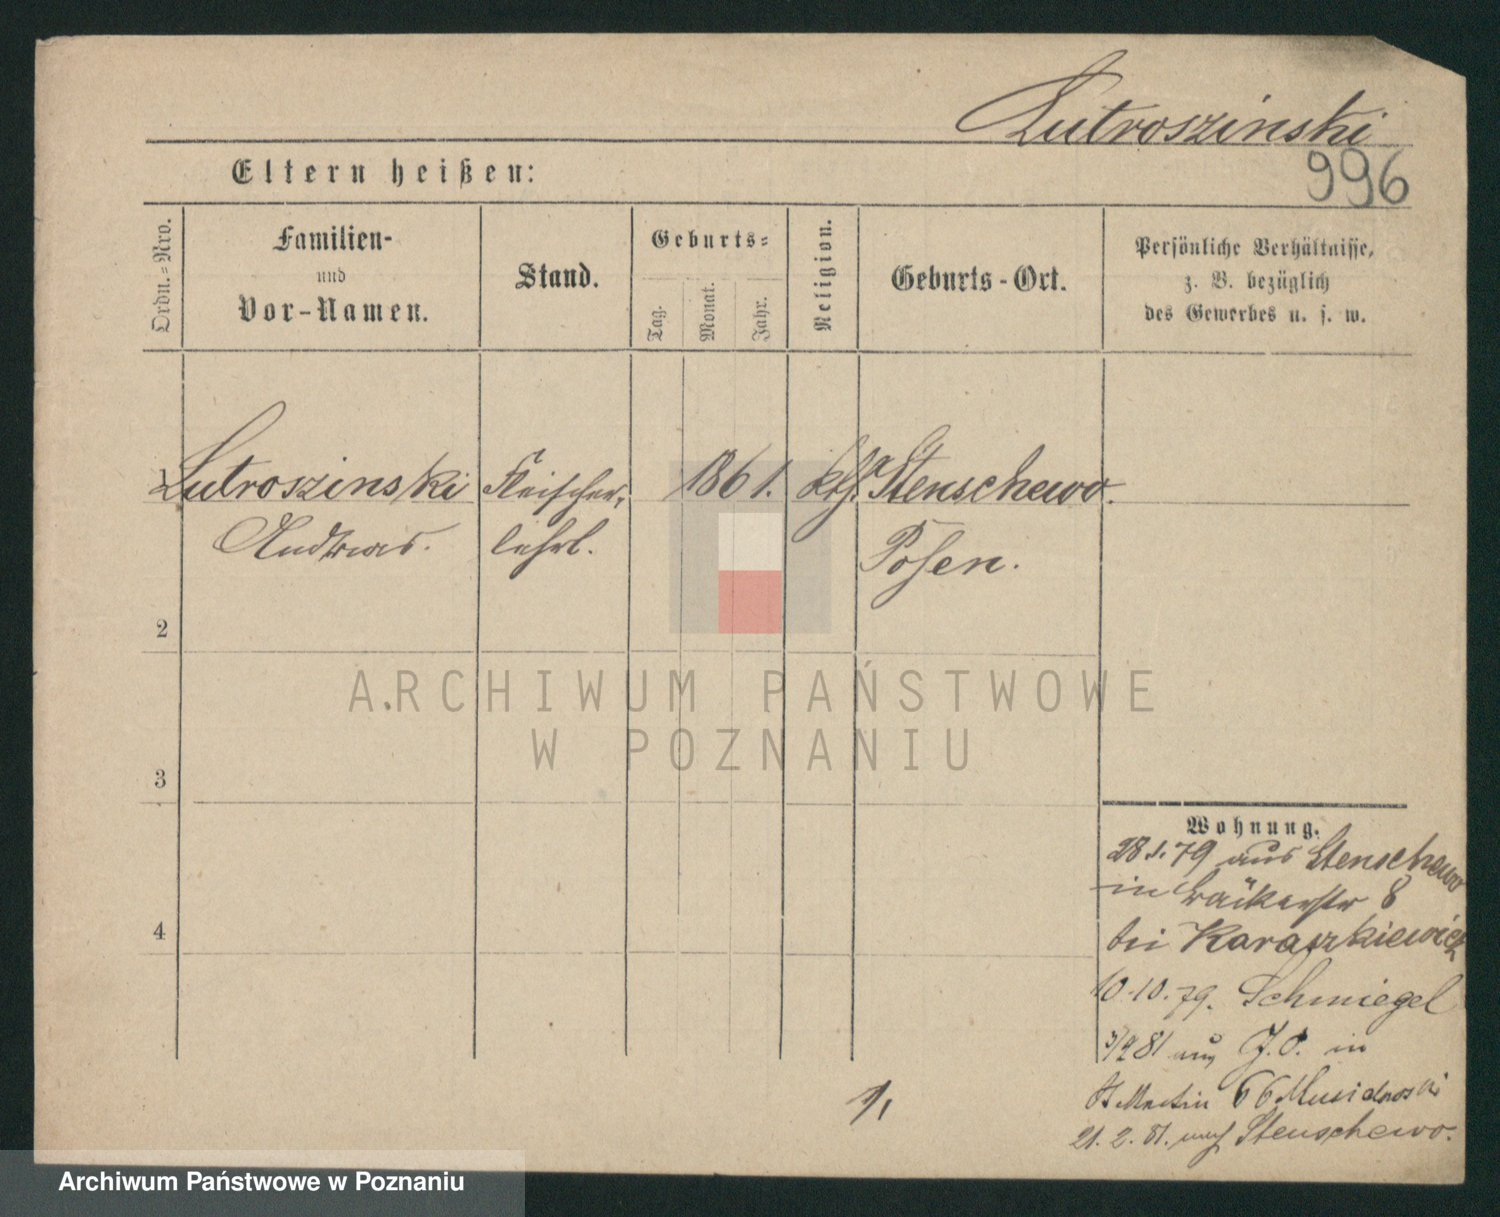 Lutroszinski
996
Eltern heißen:
Ordn.-Nro.
Familien-
und
Vor-Namen.
Stand.
Geburts-
Tag.
Monat.
Jahr.
Religion.
Geburts-Ort.
Persönliche Verhältnisse,
z. B. bezüglich
des Gewerbes u. s. w.
1
Lutroszinski
Andreas.
Fleischer-
lehrl.
1861.
kth.
Stenschewo.
Posen.
2
3
4
ARCHIWUM PAŃSTWOWE
W POZNANIU
Wohnung.
28.1.79 aus Stenschewo
in Bäckerstr 8
bei Karaszkiewicz
10.10.79. Schmiegel
81 aus J.O. in
St Martin 66
21.2.81. nach Stenschewo.
Archiwum Państwowe w Poznaniu